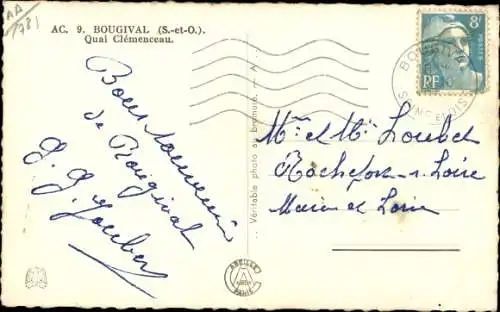 AA
781
AC. 9. BOUGIVAL (S.-et-O.).
Quai Clémenceau.
Bons souvenirs
de Bougival
G. G. Loubet
Véritable photo au bromure
8F
POSTES
RF
BOUGIVAL
SEINE ET OISE
Mme et Mr Loubet
Rochefort-s-Loire
Maine et Loire
ABEILLE
A
PARIS